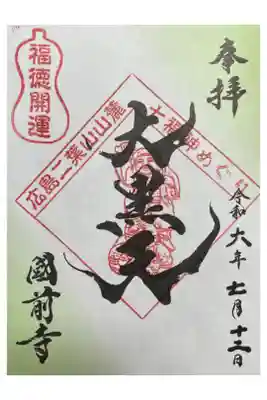 奉拝
令和六年七月十二日
福徳開運
広島二葉山山麓
七福神めぐり
大黒天
國前寺